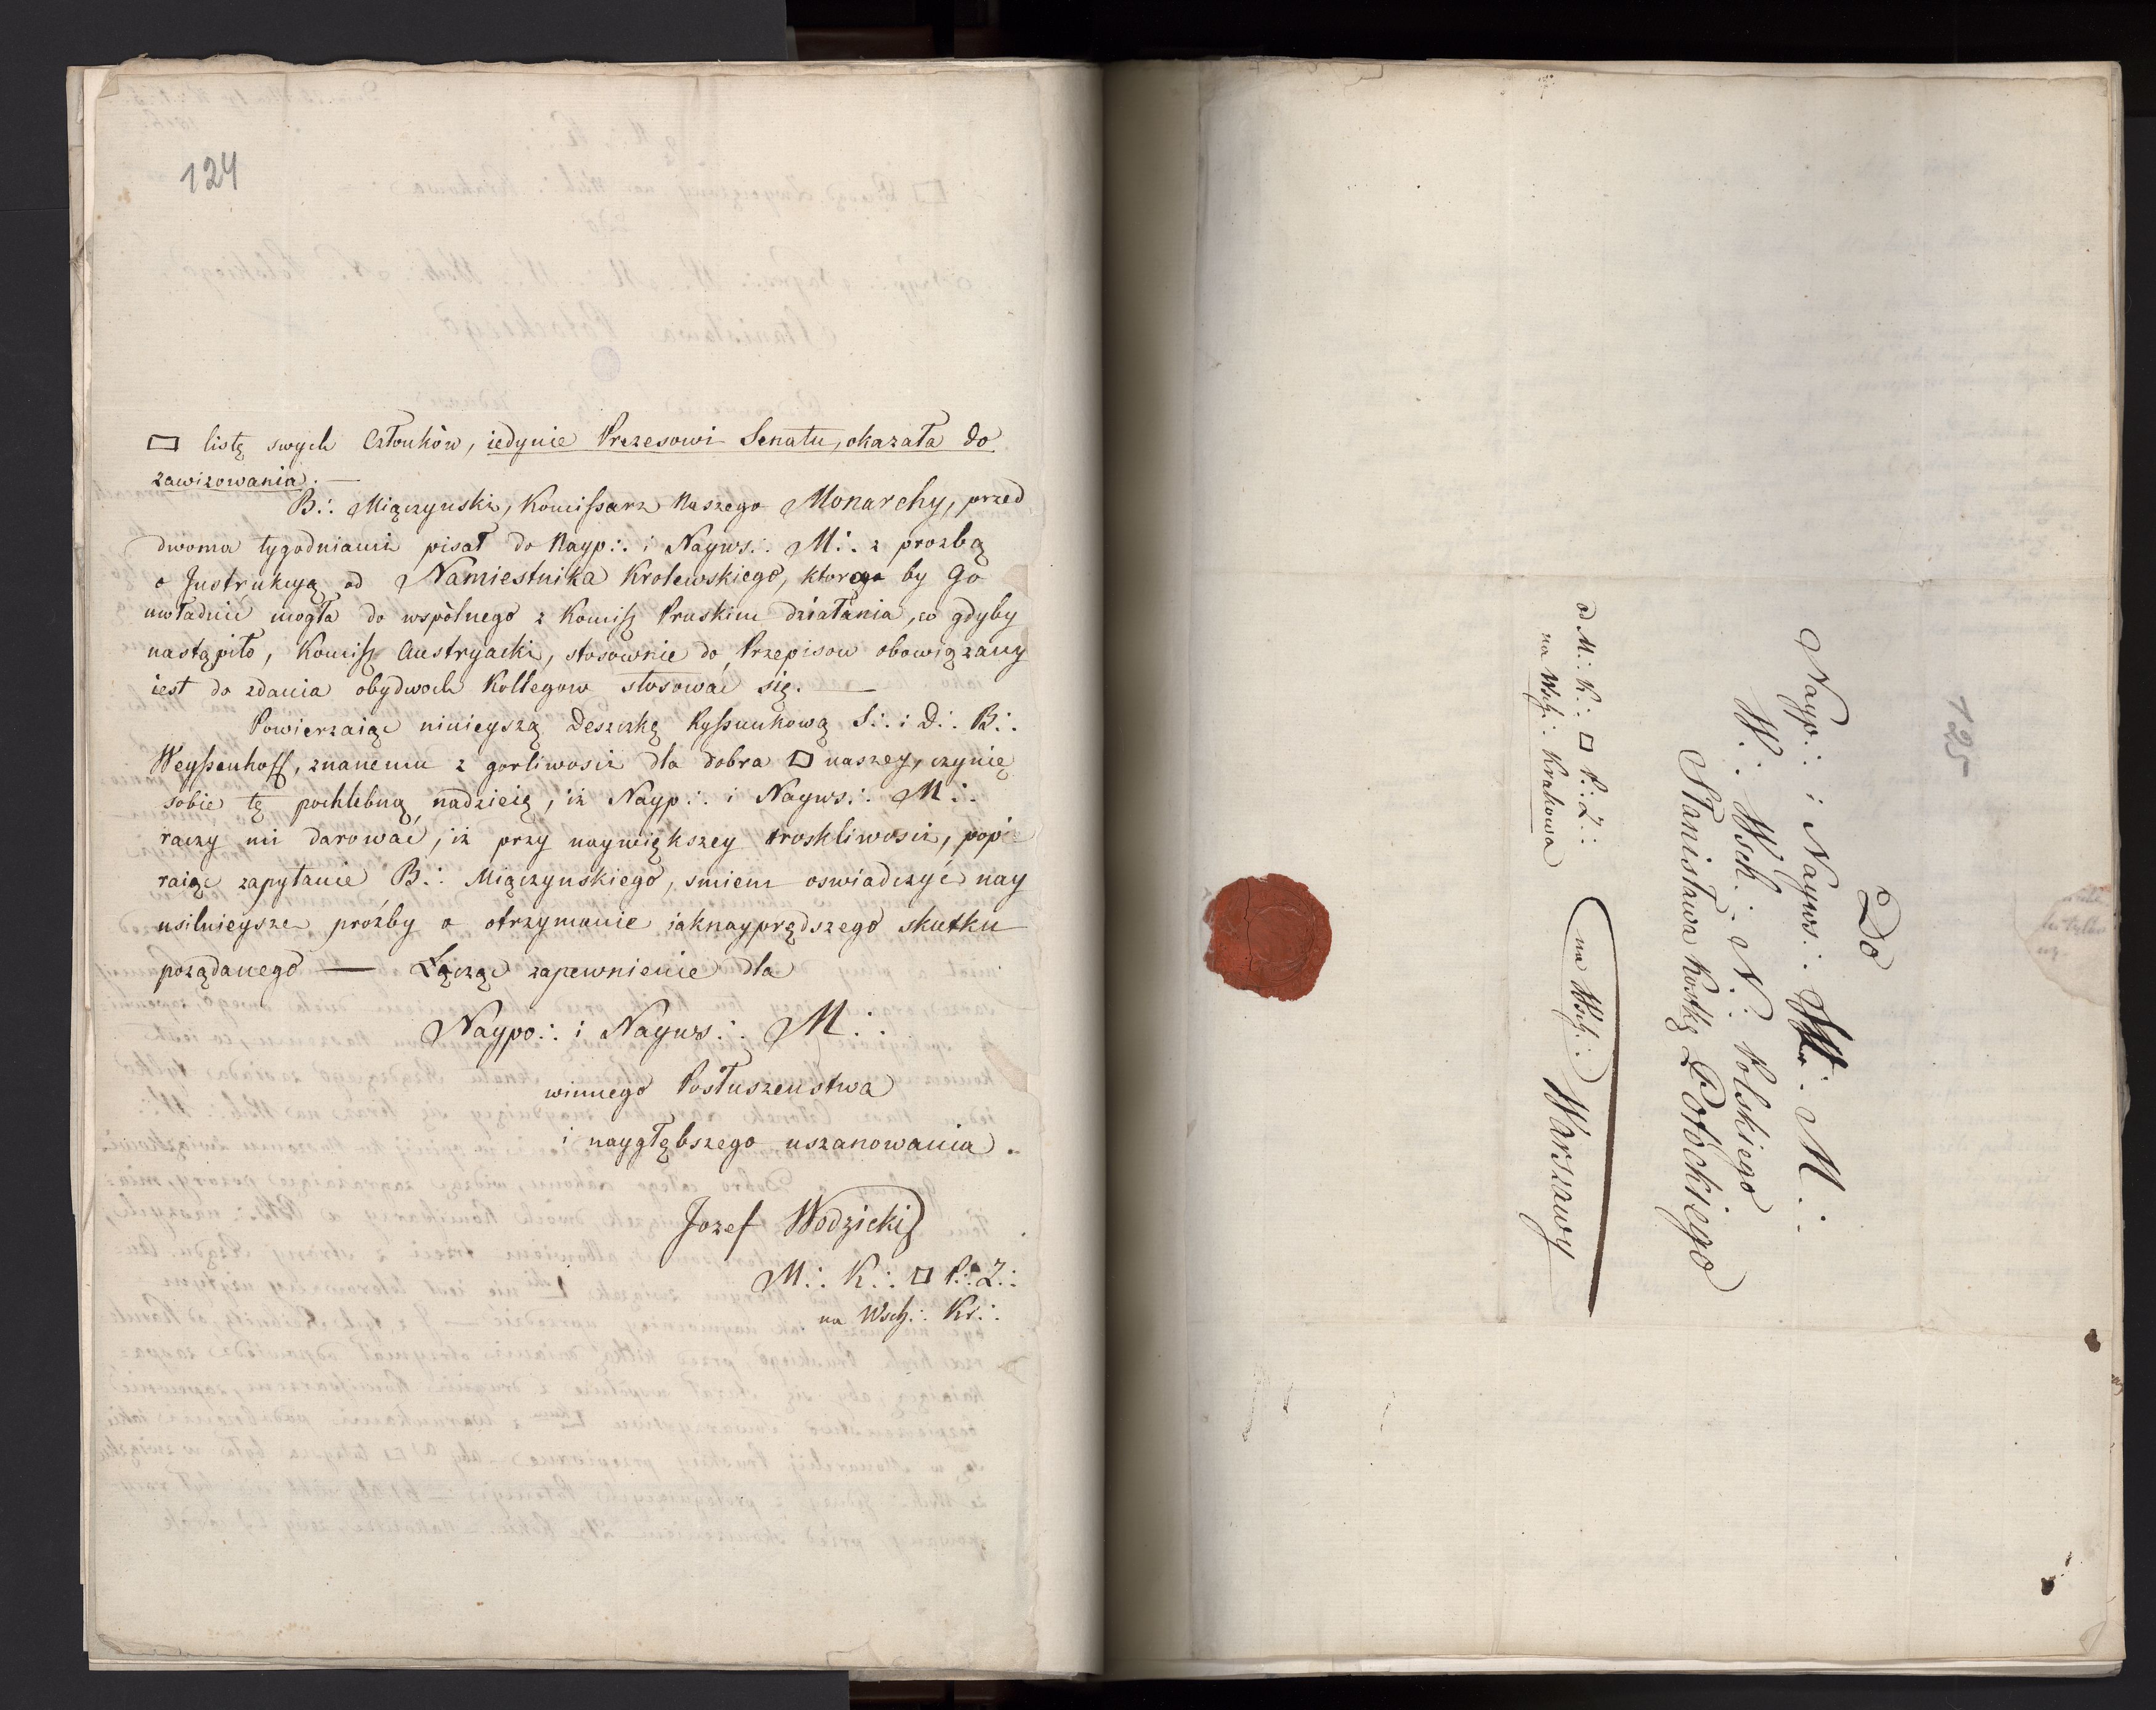 124
▭ listę swych Członków, iedynie Prezesowi Senatu, okazała do
zawizowania. —
B∴ Miączynski, Komissarz Naszego Monarchy, przed
dwoma tygodniami pisał do Nayp∴ i Nayws∴ M∴ z prozbą
o Instrukcyą od Namiestnika Krolewskiego, ktoraga by Go
uwładnić mogła do wspòlnego z Komiss Pruskim działania, co gdyby
nastąpiło, Komiss Austryacki, stosownie do Przepisow obowiązany
iest do zdania obydwoch Kollegow stosować się. —
Powierzaiąc ninieyszą Deszczkę Ryssunkową S∴ i D∴ B∴
Weyssenhoff, znanemu z gorliwości dla dobra ▭ naszey, czynię
sobie tę pochlebną nadzieię, iż Nayp∴ i Nayws∴ M∴
raczy mi darować, iż przy naywiększey troskliwości, popie
raiąc zapytanie B∴ Miączynskiego, smiem oswiadczyć nay
usilnieysze prożby o otrzymanie iaknayprędszego skutku
pożądanego — Łączę zapewnienie dla
Naypo∴ i Nayws∴ M∴
winnego Posłuszenstwa
i naygłębszego uszanowania.
Jozef Wodzicki
M∴ K∴ ▭ P∴ Z∴
na Wsch∴ Kr∴
125
Do
Nayp∴ i Nayws∴ W∴ M∴
W∴ Wsch∴ N∴ Polskiego
Stanisława Kostkę Potockiego
od M∴ K∴ ▭ P∴ Z∴
na Wsch∴ Krakowa
na Wsch∴ Warszawy